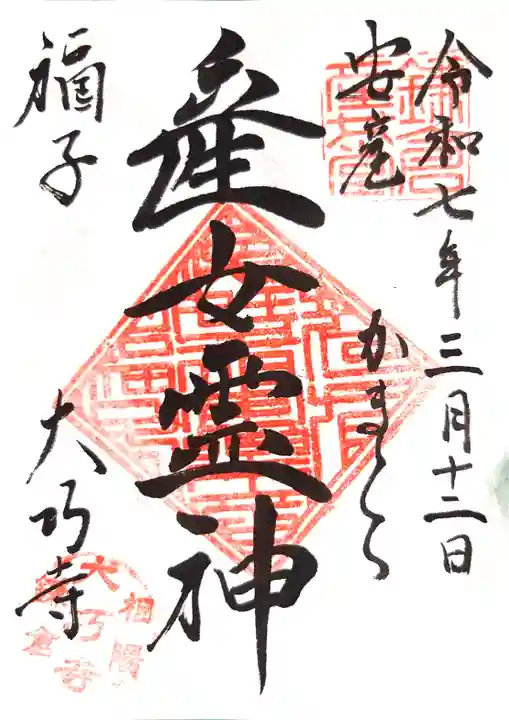 令和七年三月十二日
安産
かまくら
産女霊神
福子
大巧寺
相陽
鎌倉
大巧寺